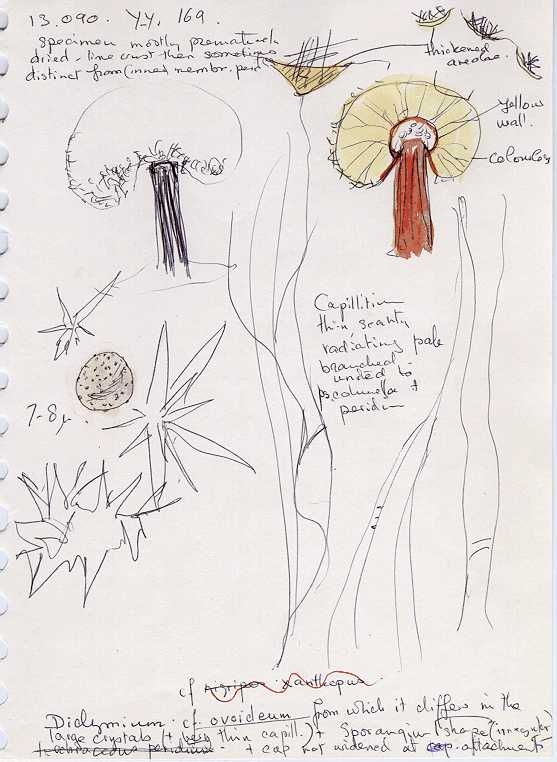 13.090. Y.Y. 169.
specimen mostly prematurely
dried - lime crust then sometimes
distinct from (inner) membr. perid
thickened
areolae.
yellow
wall.
colourless
Capillitium
thin scanty
radiating pale
branched
united to
pscolumella +
peridium
7-8 µ
cf nigripes xanthopus
Didymium cf. ovoideum from which it differs in the
large crystals (+ very thin capill.) + Sporangium shape (irregular
ochraceous peridium + cap not widened at cap. attachment